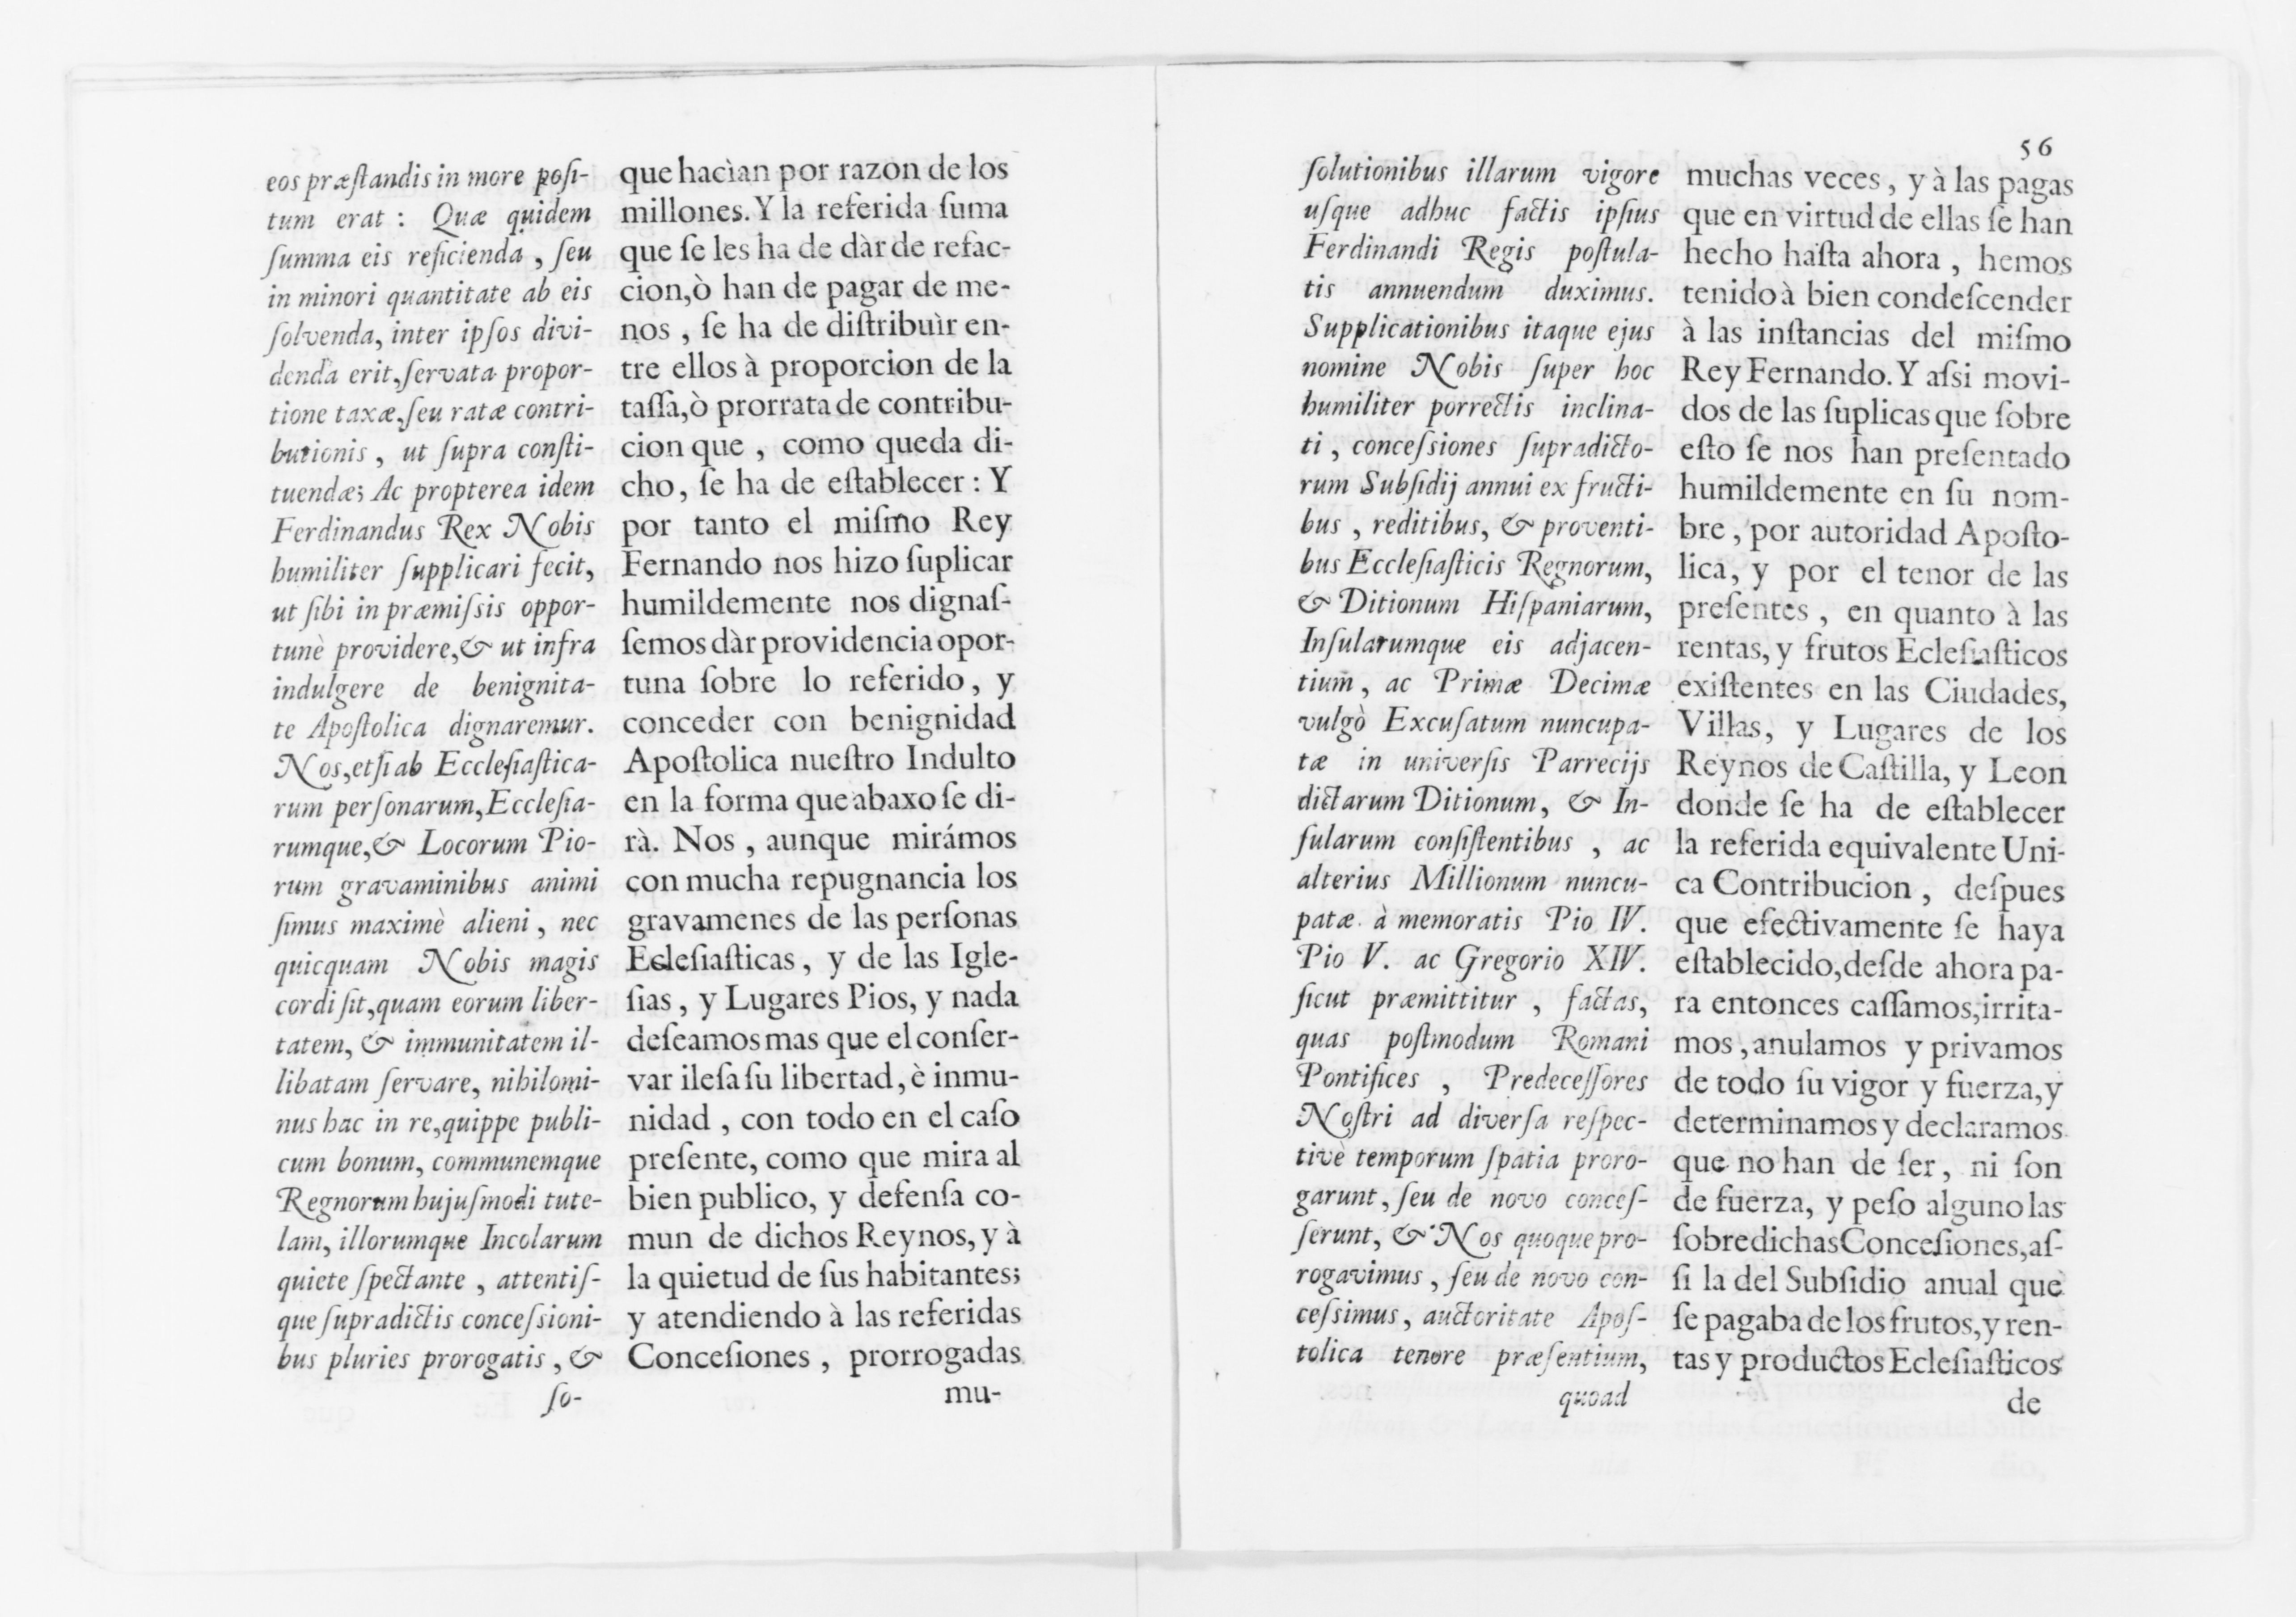 eos præſtandis in more poſi-
tum erat : Quæ quidem
ſumma eis reficienda , ſeu
in minori quantitate ab eis
ſolvenda, inter ipſos divi-
denda erit, ſervata propor-
tione taxæ, ſeu ratæ contri-
butionis , ut ſupra conſti-
tuendæ; Ac propterea idem
Ferdinandus Rex Nobis
humiliter ſupplicari fecit,
ut ſibi in præmiſsis oppor-
tunè providere, & ut infra
indulgere de benignita-
te Apoſtolica dignaremur.
Nos, etſi ab Eccleſiaſtica-
rum perſonarum, Eccleſia-
rumque, & Locorum Pio-
rum gravaminibus animi
ſimus maximè alieni , nec
quicquam Nobis magis
cordi ſit, quam eorum liber-
tatem, & immunitatem il-
libatam ſervare, nihilomi-
nus hac in re, quippe publi-
cum bonum, communemque
Regnorum hujuſmodi tute-
lam, illorumque Incolarum
quiete ſpectante , attentiſ-
que ſupradictis conceſsioni-
bus pluries prorogatis , &
ſo-
que hacìan por razon de los
millones. Y la referida ſuma
que ſe les ha de dàr de refac-
cion, ò han de pagar de me-
nos , ſe ha de diſtribuìr en-
tre ellos à proporcion de la
taſſa, ò prorrata de contribu-
cion que , como queda di-
cho, ſe ha de eſtablecer : Y
por tanto el miſmo Rey
Fernando nos hizo ſuplicar
humildemente nos dignaſ-
ſemos dàr providencia opor-
tuna ſobre lo referido, y
conceder con benignidad
Apoſtolica nueſtro Indulto
en la forma que abaxo ſe di-
rà. Nos , aunque mirámos
con mucha repugnancia los
gravamenes de las perſonas
Ecleſiaſticas, y de las Igle-
ſias , y Lugares Pios, y nada
deſeamos mas que el conſer-
var ileſa ſu libertad, è inmu-
nidad , con todo en el caſo
preſente, como que mira al
bien publico, y defenſa co-
mun de dichos Reynos, y à
la quietud de ſus habitantes;
y atendiendo à las referidas
Conceſiones , prorrogadas
mu-
56
ſolutionibus illarum vigore
uſque adhuc factis ipſius
Ferdinandi Regis poſtula-
tis annuendum duximus.
Supplicationibus itaque ejus
nomine Nobis ſuper hoc
humiliter porrectis inclina-
ti , conceſsiones ſupradicto-
rum Subſidij annui ex fructi-
bus , reditibus, & proventi-
bus Eccleſiaſticis Regnorum,
& Ditionum Hiſpaniarum,
Inſularumque eis adjacen-
tium , ac Primæ Decimæ
vulgò Excuſatum nuncupa-
tæ in univerſis Parrecijs
dictarum Ditionum, & In-
ſularum conſiſtentibus , ac
alterius Millionum nuncu-
patæ à memoratis Pio IV.
Pio V. ac Gregorio XIV.
ſicut præmittitur , factas,
quas poſtmodum Romani
Pontifices , Predeceſſores
Noſtri ad diverſa reſpec-
tivè temporum ſpatia proro-
garunt, ſeu de novo conceſ-
ſerunt, & Nos quoque pro-
rogavimus, ſeu de novo con-
ceſsimus, auctoritate Apoſ-
tolica tenore præſentium,
quoad
muchas veces, y à las pagas
que en virtud de ellas ſe han
hecho haſta ahora , hemos
tenido à bien condeſcender
à las inſtancias del miſmo
Rey Fernando. Y aſsi movi-
dos de las ſuplicas que ſobre
eſto ſe nos han preſentado
humildemente en ſu nom-
bre , por autoridad Apoſto-
lica, y por el tenor de las
preſentes , en quanto à las
rentas, y frutos Ecleſiaſticos
exiſtentes en las Ciudades,
Villas, y Lugares de los
Reynos de Caſtilla, y Leon
donde ſe ha de eſtablecer
la referida equivalente Uni-
ca Contribucion , deſpues
que efectivamente ſe haya
eſtablecido, deſde ahora pa-
ra entonces caſſamos, irrita-
mos , anulamos y privamos
de todo ſu vigor y fuerza, y
determinamos y declaramos
que no han de ſer, ni ſon
de fuerza, y peſo alguno las
ſobredichas Conceſiones, aſ-
ſi la del Subſidio anual que
ſe pagaba de los frutos, y ren-
tas y productos Ecleſiaſticos
de